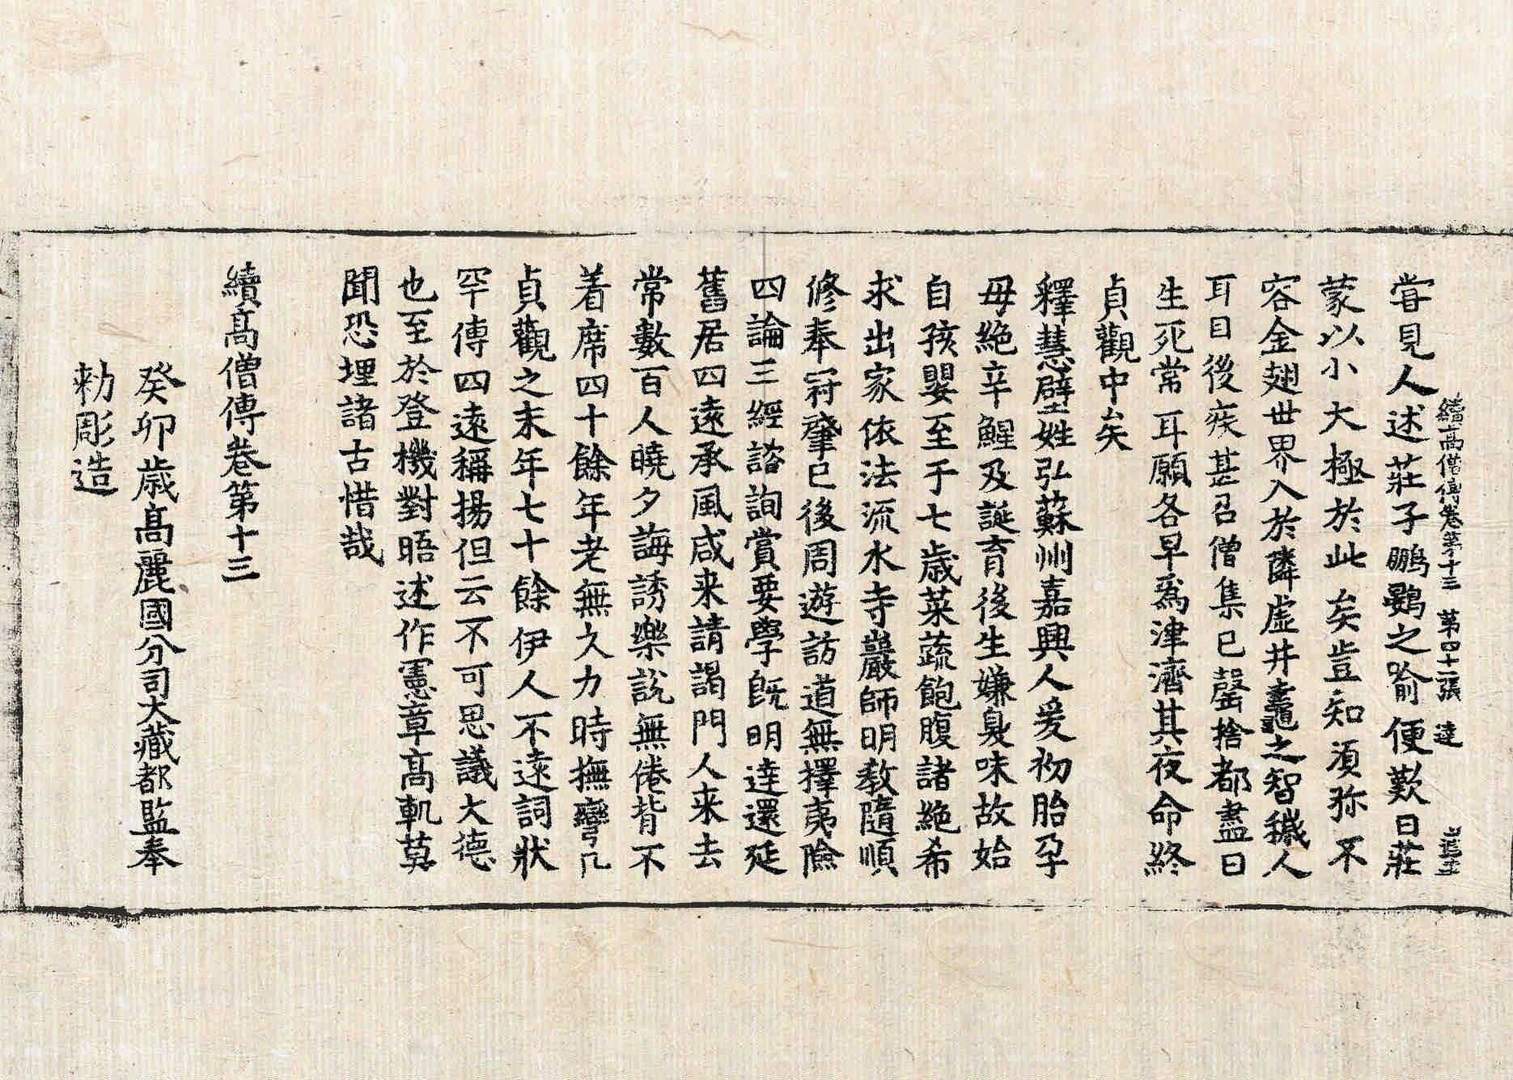 嘗見人述莊子鵬鷃之喻便歎曰莊
續高僧傳卷第十三 第四十二張 達
蒙以小大極於此矣豈知須弥不
容金翅世界入於隣虛井鼃之智穢人
耳目後疾甚召僧集已罄捨都盡曰
生死常耳願各早爲津濟其夜命終
貞觀中矣
釋慧壁姓弘蘇州嘉興人爰初胎孕
母絕辛鯹及誕育後生嫌臭味故始
自孩嬰至于七歲菜蔬飽腹諸絕希
求出家依法流水寺巖師明教隨順
修奉冠肇已後周遊訪道無擇夷險
四論三經諮詢賞要學旣明達還延
舊居四遠承風咸来請謁門人来去
常數百人曉夕誨誘樂說無倦背不
着席四十餘年老無欠力時撫臠几
貞觀之末年七十餘伊人不遠詞狀
罕傳四遠稱揚但云不可思議大德
也至於登機對晤述作憲章高軌莫
聞恐埋諸古惜哉
續高僧傳卷第十三
癸卯歲高麗國分司大藏都監奉
勅彫造